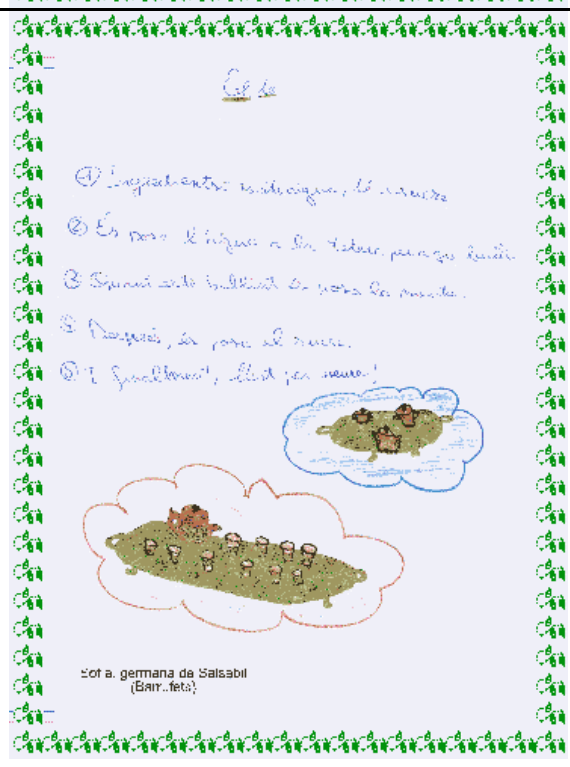 El te
① Ingredients: aigua, té sucre
② Es posa l'aigua a la tetera, perque bulli.
③ Quan està bullint es posa la menta.
④ Després, es posa el sucre.
⑤ I finalment, llest per veure!
Sofia, germana de Salsabil